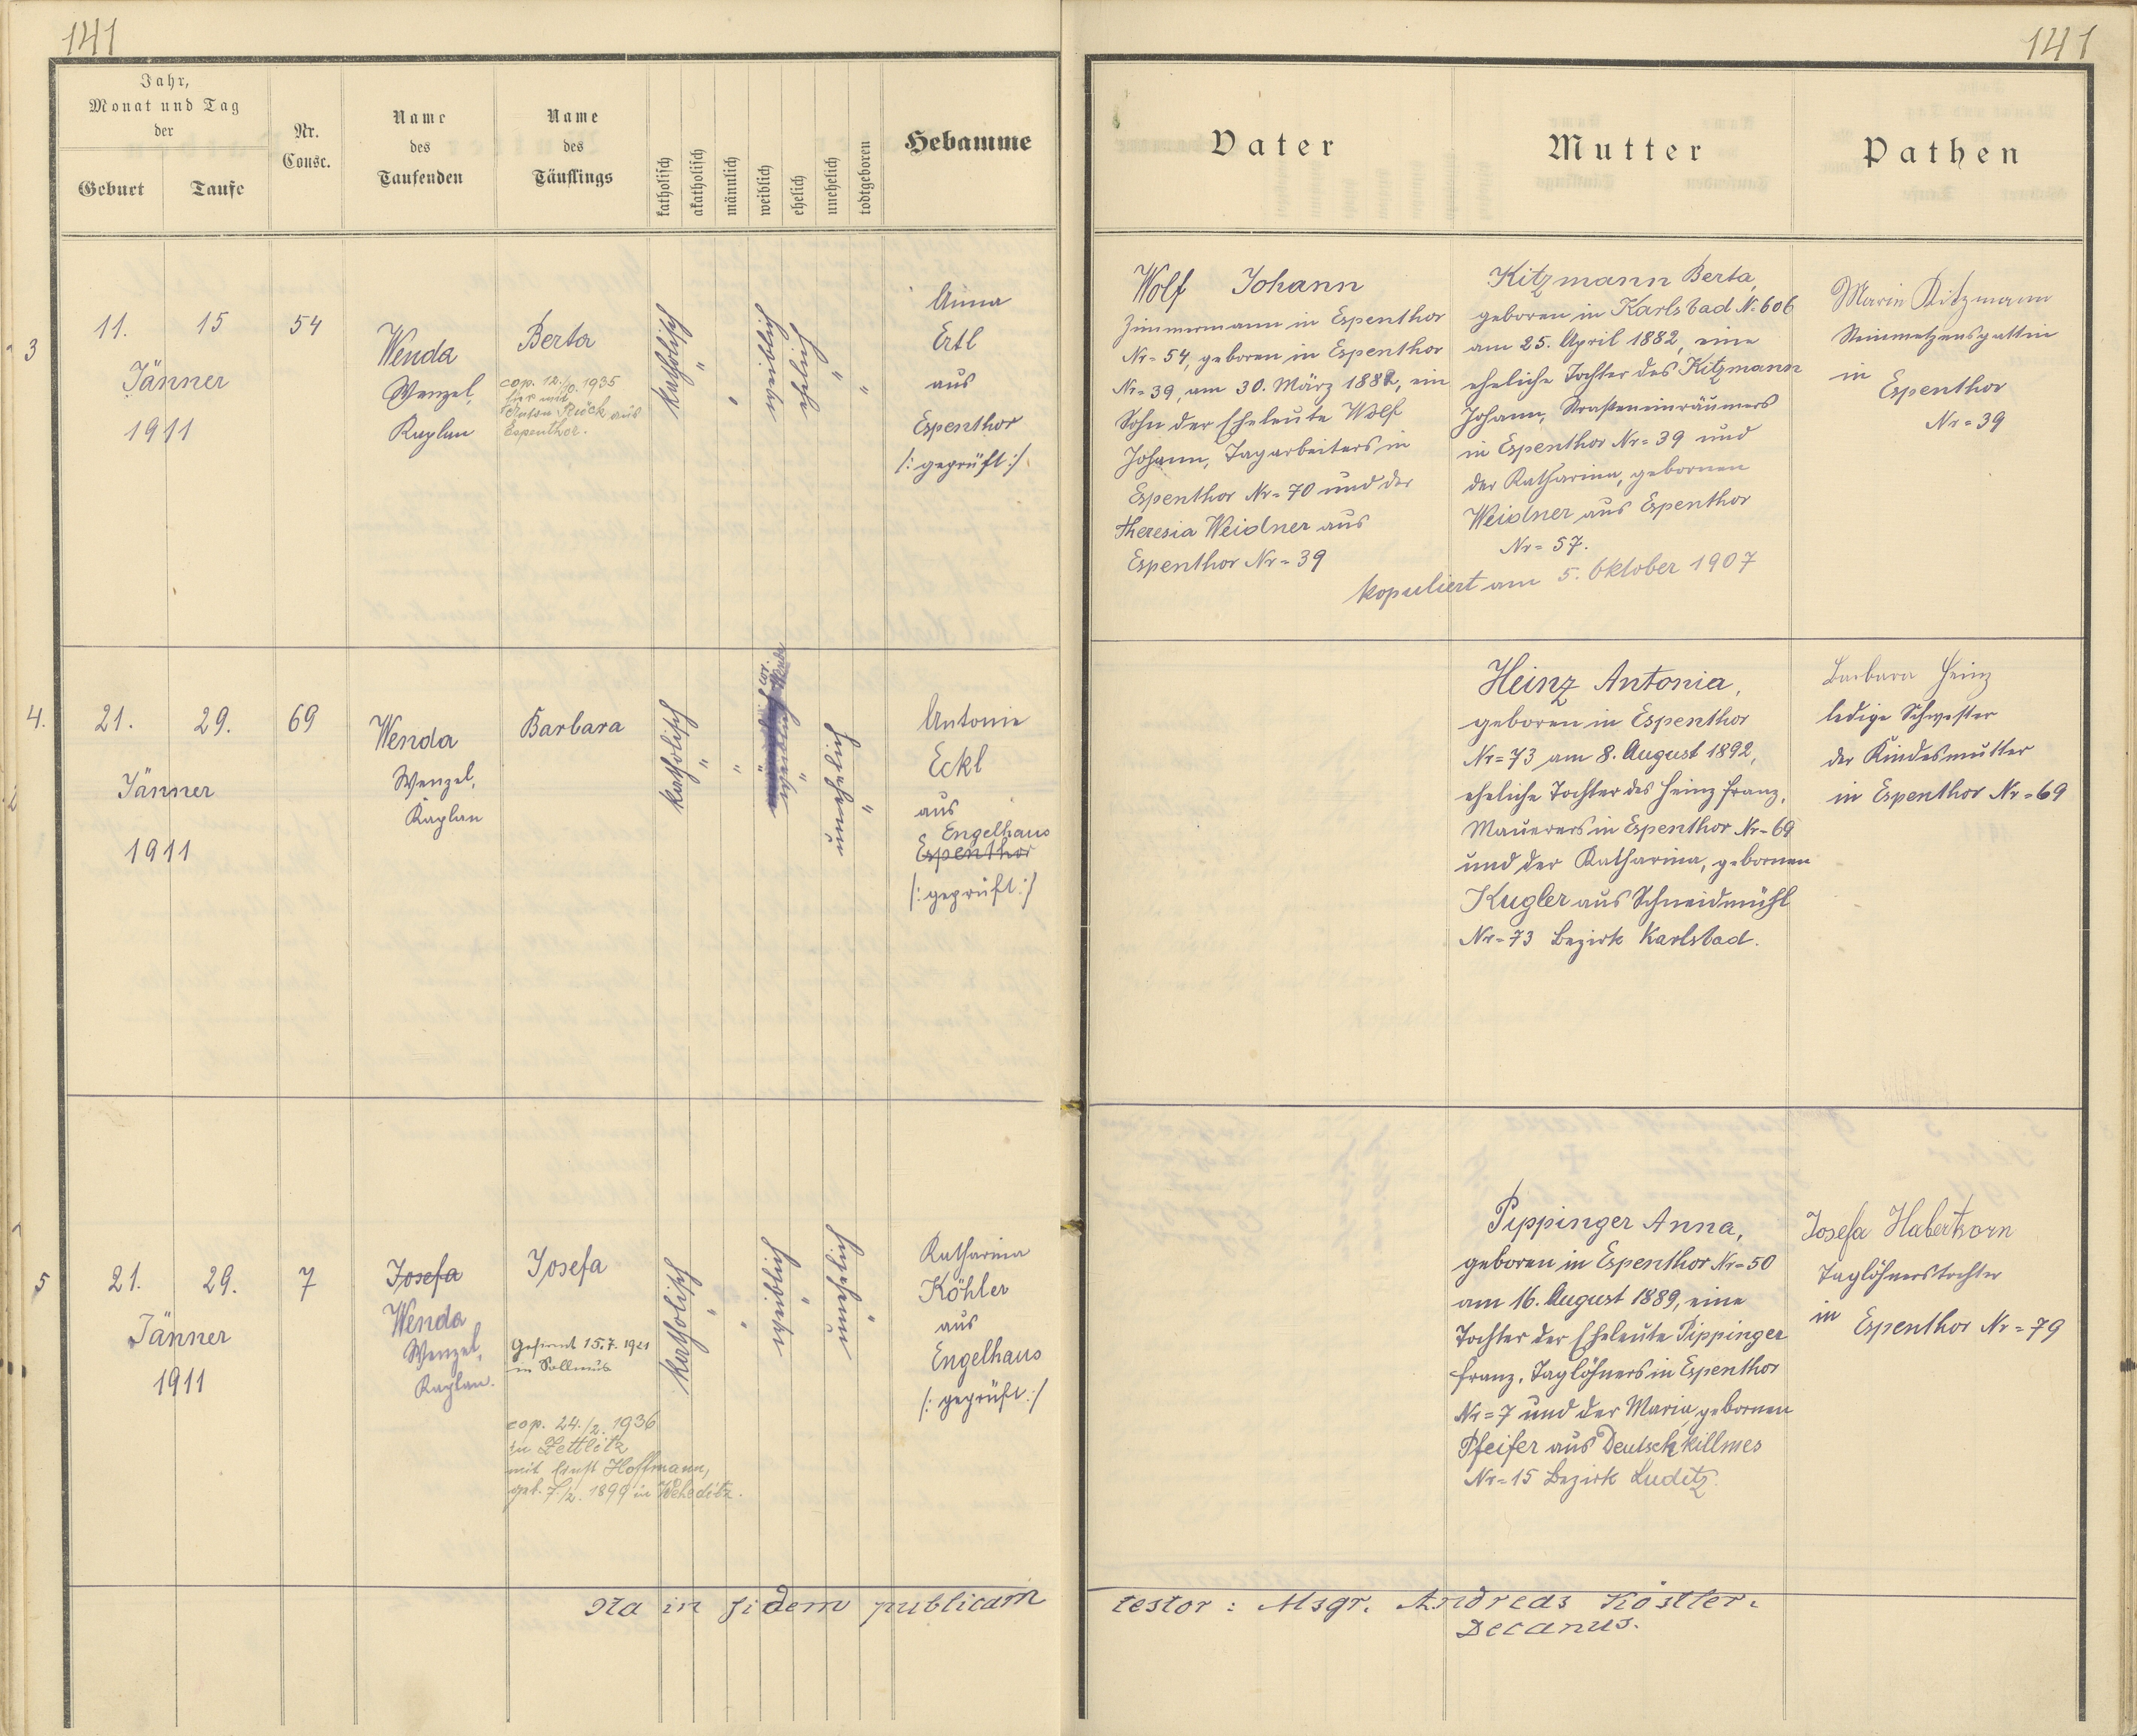 141
141
Jahr,
Monat und Tag
der
Geburt
Taufe
Nr.
Consc.
Name
des
Taufenden
Name
des
Täuflings
katholisch
akatholisch
männlich
weiblich
ehelich
unehelich
todtgeboren
Hebamme
Vater
Mutter
Pathen
3
11. 15
Jänner
1911
54
Wenda
Wenzel,
Kaplan
Berta
cop. 12./10. 1935
hier mit
Anton Rück aus
Espenthor.
katholisch
"
"
weiblich
ehelich
"
"
Anna
Ertl
aus
Espenthor
/: geprüft :/
Wolf Johann
Zimmermann in Espenthor
Nr= 54, geboren in Espenthor
Nr= 39, am 30. März 1882, ein
Sohn der Eheleute Wolf
Johann, Tagarbeiters in
Espenthor Nr= 70 und der
Theresia Weidner aus
Espenthor Nr= 39
Kitzmann Berta,
geboren in Karlsbad N= 606
am 25. April 1882, eine
eheliche Tochter des Kitzmann
Johann, Straßeneinräumers
in Espenthor Nr= 39 und
der Katharina, gebornen
Weidner aus Espenthor
Nr= 57.
kopuliert am 5. Oktober 1907
Maria Kitzmann
Steinmetzensgattin
in
Espenthor
Nr= 39
4.
21. 29.
Jänner
1911
69
Wenda
Wenzel,
Kaplan
Barbara
katholisch
"
"
cor.
weiblich
"
unehelich
"
Antonie
Eckl
aus
Engelhaus
Espenthor
/: geprüft :/
Heinz Antonia,
geboren in Espenthor
Nr= 73 am 8. August 1892,
eheliche Tochter des Heinz Franz,
Mauerers in Espenthor Nr= 69
und der Katharina, gebornen
Kugler aus Schneidmühl
Nr= 73 Bezirk Karlsbad.
Barbara Heinz
ledige Schwester
der Kindesmutter
in Espenthor Nr= 69
5
21. 29.
Jänner
1911
7
Josefa
Wenda
Wenzel,
Kaplan.
Josefa
Gefirmt 15.7.1921
in Sollmus
cop. 24./2. 1936
in Zettlitz
mit Ernst Hoffmann,
geb. 7./2. 1899 in Weheditz.
katholisch
"
"
weiblich
"
unehelich
"
Katharina
Köhler
aus
Engelhaus
/: geprüft :/
Pippinger Anna,
geboren in Espenthor Nr= 50
am 16. August 1889, eine
Tochter der Eheleute Pippinger
Franz, Taglöhners in Espenthor
Nr= 7 und der Maria, gebornen
Pfeifer aus Deutschkillmes
Nr= 15 Bezirk Luditz.
Josefa Haberkorn
Taglöhnerstochter
in Espenthor Nr= 79
Ita in fidem publicam testor : Msgr. Andreas Köstler.
Decanus.